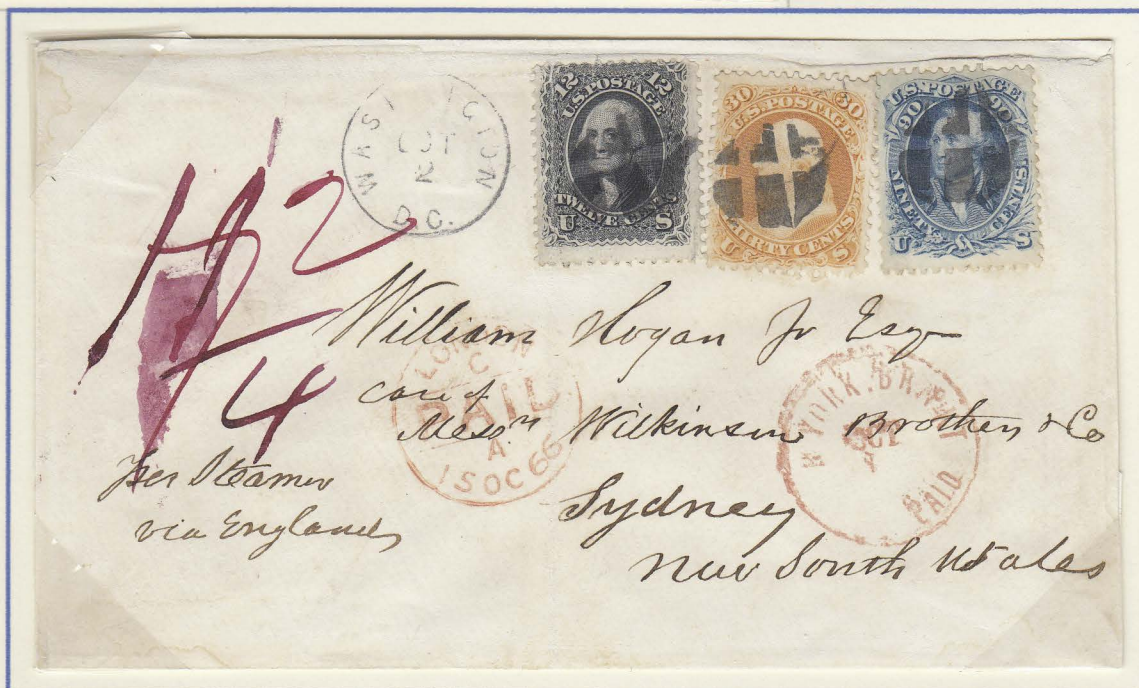 WASHINGTON
OCT
2
D.C.
12 12
U.S. POSTAGE
TWELVE CENTS
U S
30 30
U.S. POSTAGE
THIRTY CENTS
U S
U.S. POSTAGE
90 90
NINETY CENTS
U S
1/2
4
William Hogan Jr Esqr
care of
Messrs Wilkinson Brothers & Co
Sydney
New South Wales
Per Steamer
via England
LONDON
C
PAID
A
15 OC 66
N YORK BR. PKT
OCT
PAID